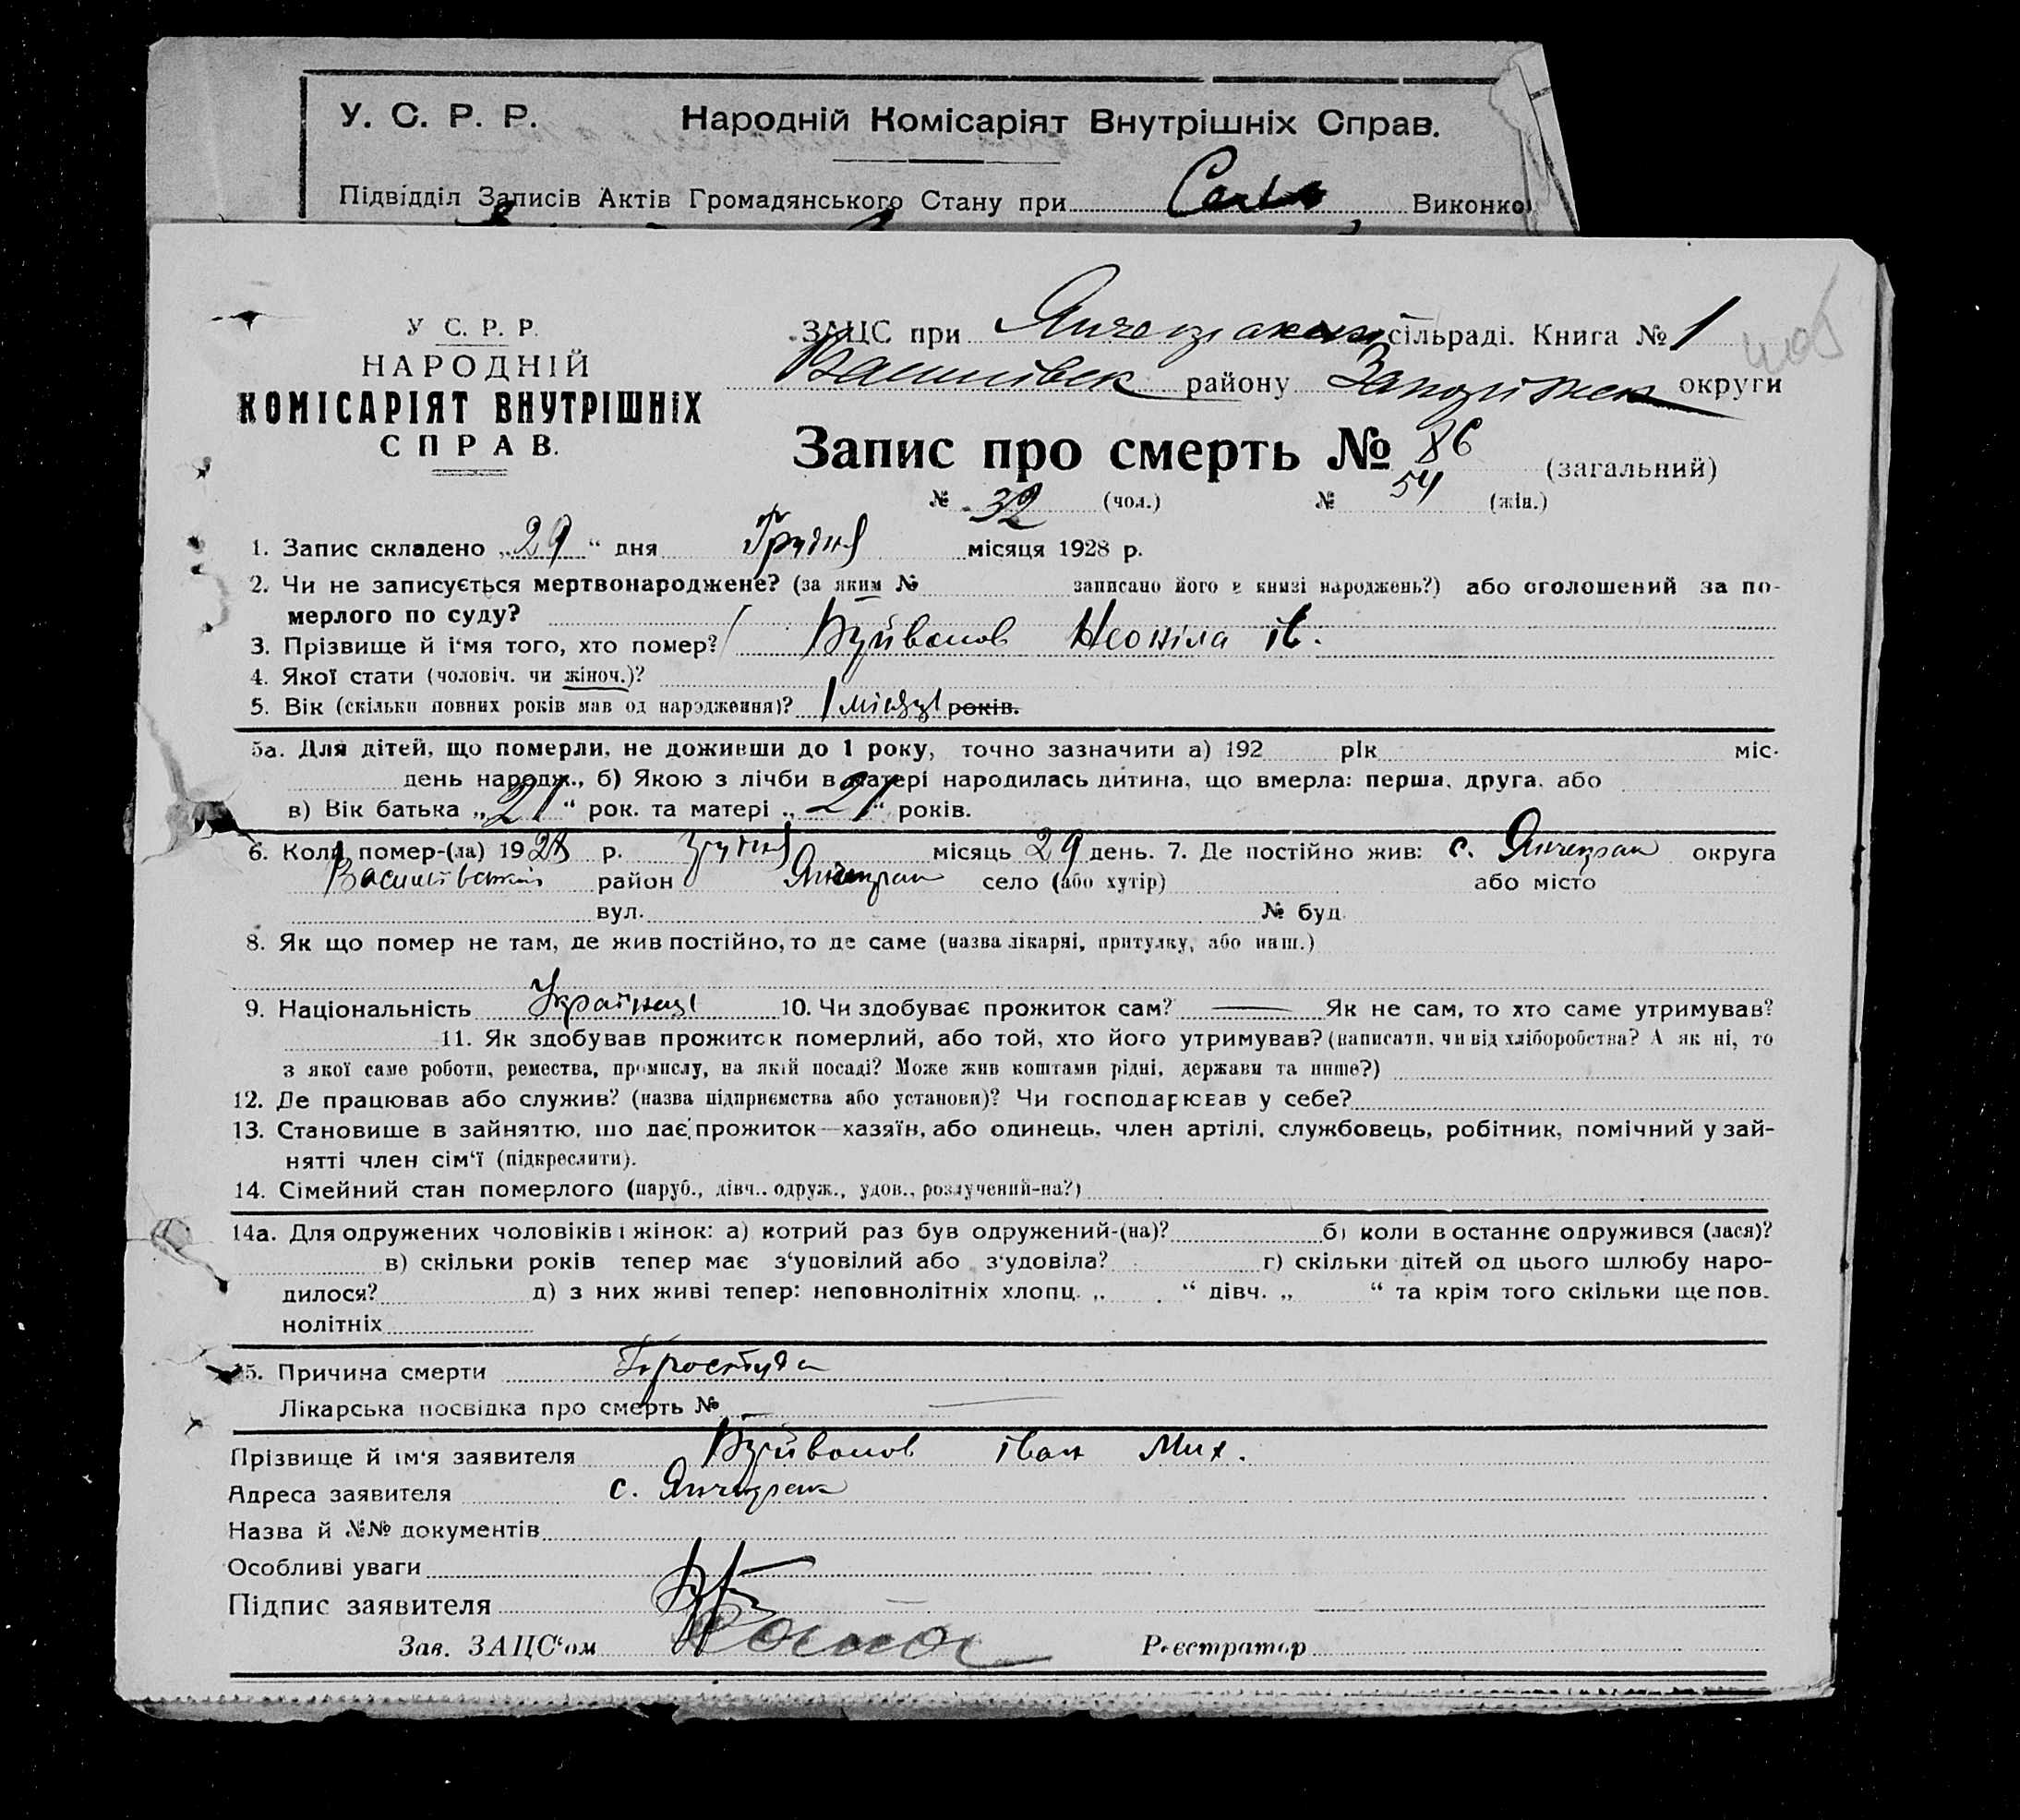 У. С. Р. Р. Народній Комісаріят Внутрішніх Справ.
Підвідділ Записів Актів Громадянського Стану при Виконко
У С. Р. Р.
НАРОДНІЙ
КОМІСАРІЯТ ВНУТРІШНІХ
СПРАВ.
ЗАЦС при сільраді. Книга № 1
Василівськ району Запоріжск округи
Запис про смерть № 86 (загальний)
№ 32 (чол.) № 54 (жін.)
1. Запис складено „29“ дня Грудня місяця 1928 р.
2. Чи не записується мертвонароджене? (за яким № записано його в книзі народжень?) або оголошений за по-
мерлого по суду?
3. Прізвище й і‘мя того, хто помер? Буйванов Неоніла Ів.
4. Якої стати (чоловіч. чи жіноч.)?
5. Вік (скільки повних років мав од народження)? 1 місяць років.
5а. Для дітей, що померли, не доживши до 1 року, точно зазначити а) 192 рік міс.
день народж., б) Якою з лічби в матері народилась дитина, що вмерла: перша, друга, або
в) Вік батька „21“ рок. та матері „21“ років.
6. Коли помер-(ла) 1928 р. грудня місяць 29 день. 7. Де постійно жив: с. Янчекрак округа
Василівський район Янчекрак село (або хутір) або місто
вул. № буд.
8. Як що помер не там, де жив постійно, то де саме (назва лікарні, притулку, або инш.)
9. Національність Українці 10. Чи здобуває прожиток сам? — Як не сам, то хто саме утримував?
11. Як здобував прожиток померлий, або той, хто його утримував? (написати, чи від хліборобства? А як ні, то
з якої саме роботи, ремества, промислу, на якій посаді? Може жив коштами рідні, держави та инше?)
12. Де працював або служив? (назва підприємства або установи)? Чи господарював у себе?
13. Становище в зайняттю, що дає прожиток—хазяїн, або одинець, член артілі, службовець, робітник, помічний у зай-
нятті член сім‘ї (підкреслити).
14. Сімейний стан померлого (паруб., дівч., одруж., удов., розлучений-на?)
14а. Для одружених чоловіків і жінок: а) котрий раз був одружений-(на)? б) коли в останнє одружився (лася)?
в) скільки років тепер має з‘удовілий або з‘удовіла? г) скільки дітей од цього шлюбу наро-
дилося? д) з них живі тепер: неповнолітніх хлопц. „ “ дівч. „ “ та крім того скільки ще пов.
нолітніх
15. Причина смерти Простуда
Лікарська посвідка про смерть № —
Прізвище й ім‘я заявителя Буйванов Іван Мих.
Адреса заявителя с. Янчекрак
Назва й №№ документів
Особливі уваги
Підпис заявителя
Зав. ЗАЦС‘ом Реєстратор